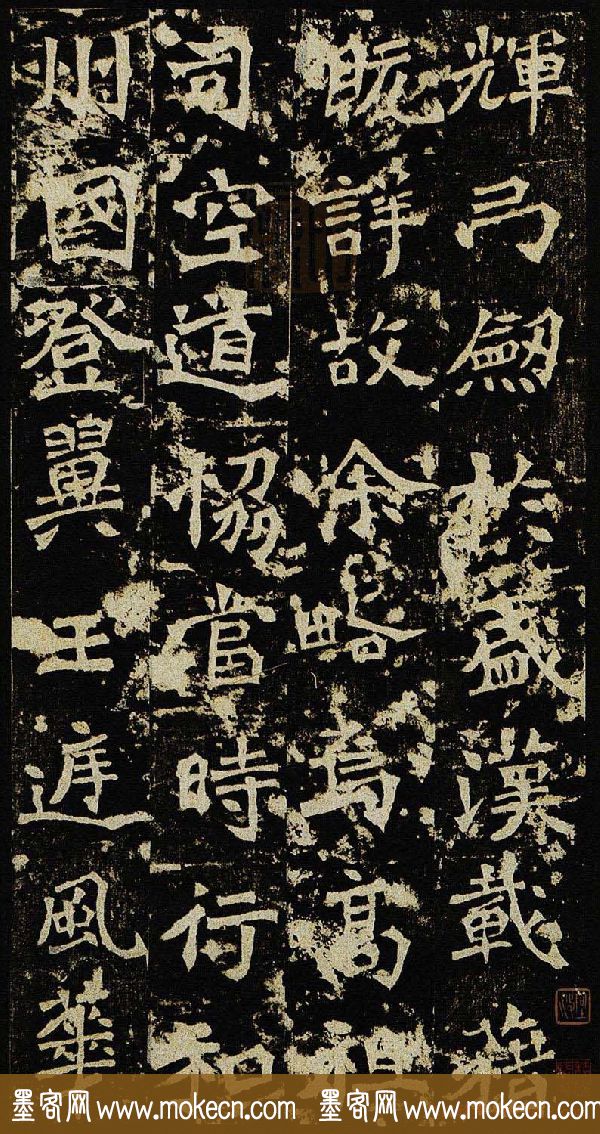 輝弓劔於盛漢載籍
既詳故余略焉高祖
司空道協當時行和
州國登翼王庭風華
墨客网 www.mokecn.com 墨客网 www.mokecn.com